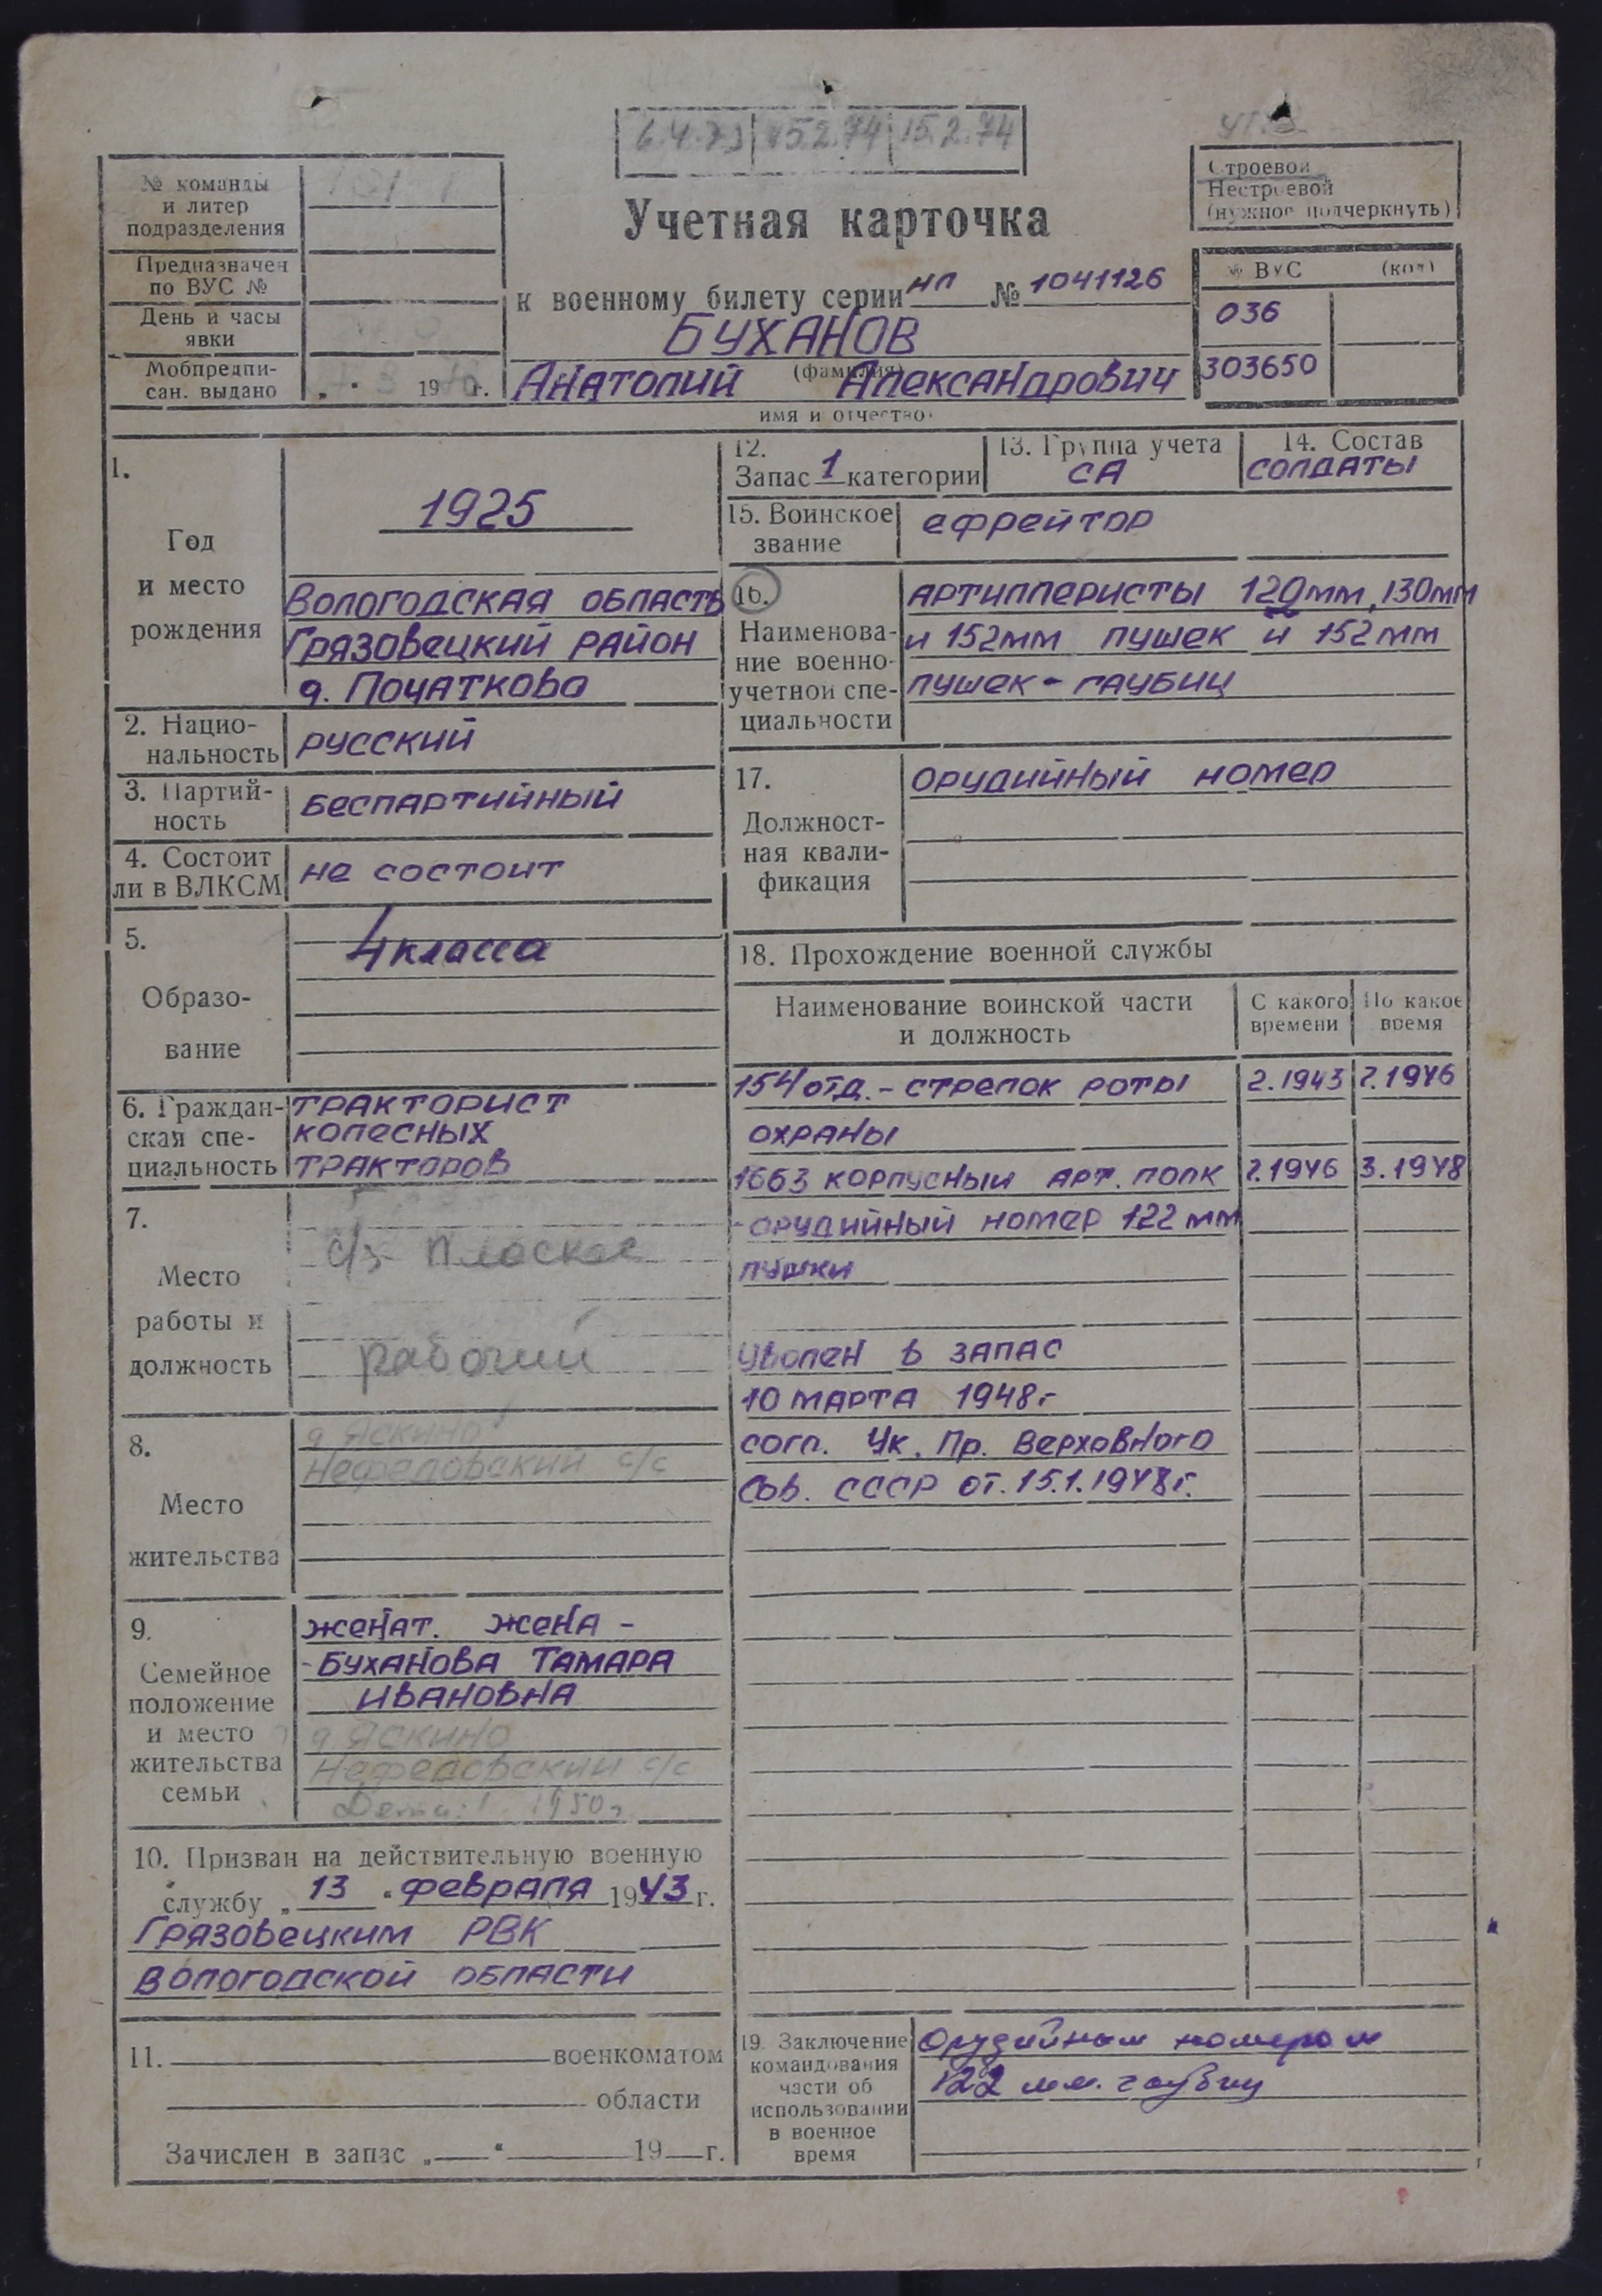 6.4.73 15.2.74 15.2.74
Строевой
Нестроевой
(нужное подчеркнуть)
№ команды
и литер
подразделения
Предназначен
по ВУС №
День и часы
явки
Мобпредпи-
сан. выдано „ " 3 19 г.
Учетная карточка
к военному билету серии НП № 1041126
БУХАНОВ
(фамилия)
Анатолий Александрович
имя и отчество
№ ВУС (код)
036
303650
1.
Год
и место
рождения
1925
Вологодская область
Грязовецкий район
д. Початково
2. Нацио-
нальность русский
3. Партий-
ность беспартийный
4. Состоит
ли в ВЛКСМ не состоит
5.
Образо-
вание
4 класса
6. Граждан-
ская спе-
циальность
тракторист
колесных
тракторов
7.
Место
работы и
должность
с/з Плоское
рабочий
8.
Место
жительства
д Яскино
Нефедовский с/с
9.
Семейное
положение
и место
жительства
семьи
женат. жена -
- Буханова Тамара
Ивановна
д Яскино
Нефедовский с/с
Дети: 1 1950г
10. Призван на действительную военную
службу „ 13 " февраля 1943 г.
Грязовецким РВК
Вологодской области
11. военкоматом
области
Зачислен в запас „ " 19 г.
12.
Запас 1 категории
13. Группа учета
СА
14. Состав
солдаты
15. Воинское
звание
ефрейтор
16.
Наименова-
ние военно-
учетной спе-
циальности
артиллеристы 120мм, 130мм
и 152мм пушек и 152мм
пушек - гаубиц
17.
Должност-
ная квали-
фикация
орудийный номер
18. Прохождение военной службы
Наименование воинской части
и должность
С какого
времени
По какое
время
154 отд. - стрелок роты 2.1943 2.1946
охраны
1663 корпусный арт. полк 2.1946 3.1948
- орудийный номер 122 мм
пушки
уволен в запас
10 марта 1948г
согл. Ук. Пр. Верховного
Сов. СССР от. 15.1.1948г.
19. Заключение
командования
части об
использовании
в военное
время
Орудийным номером
122 мм. гаубиц